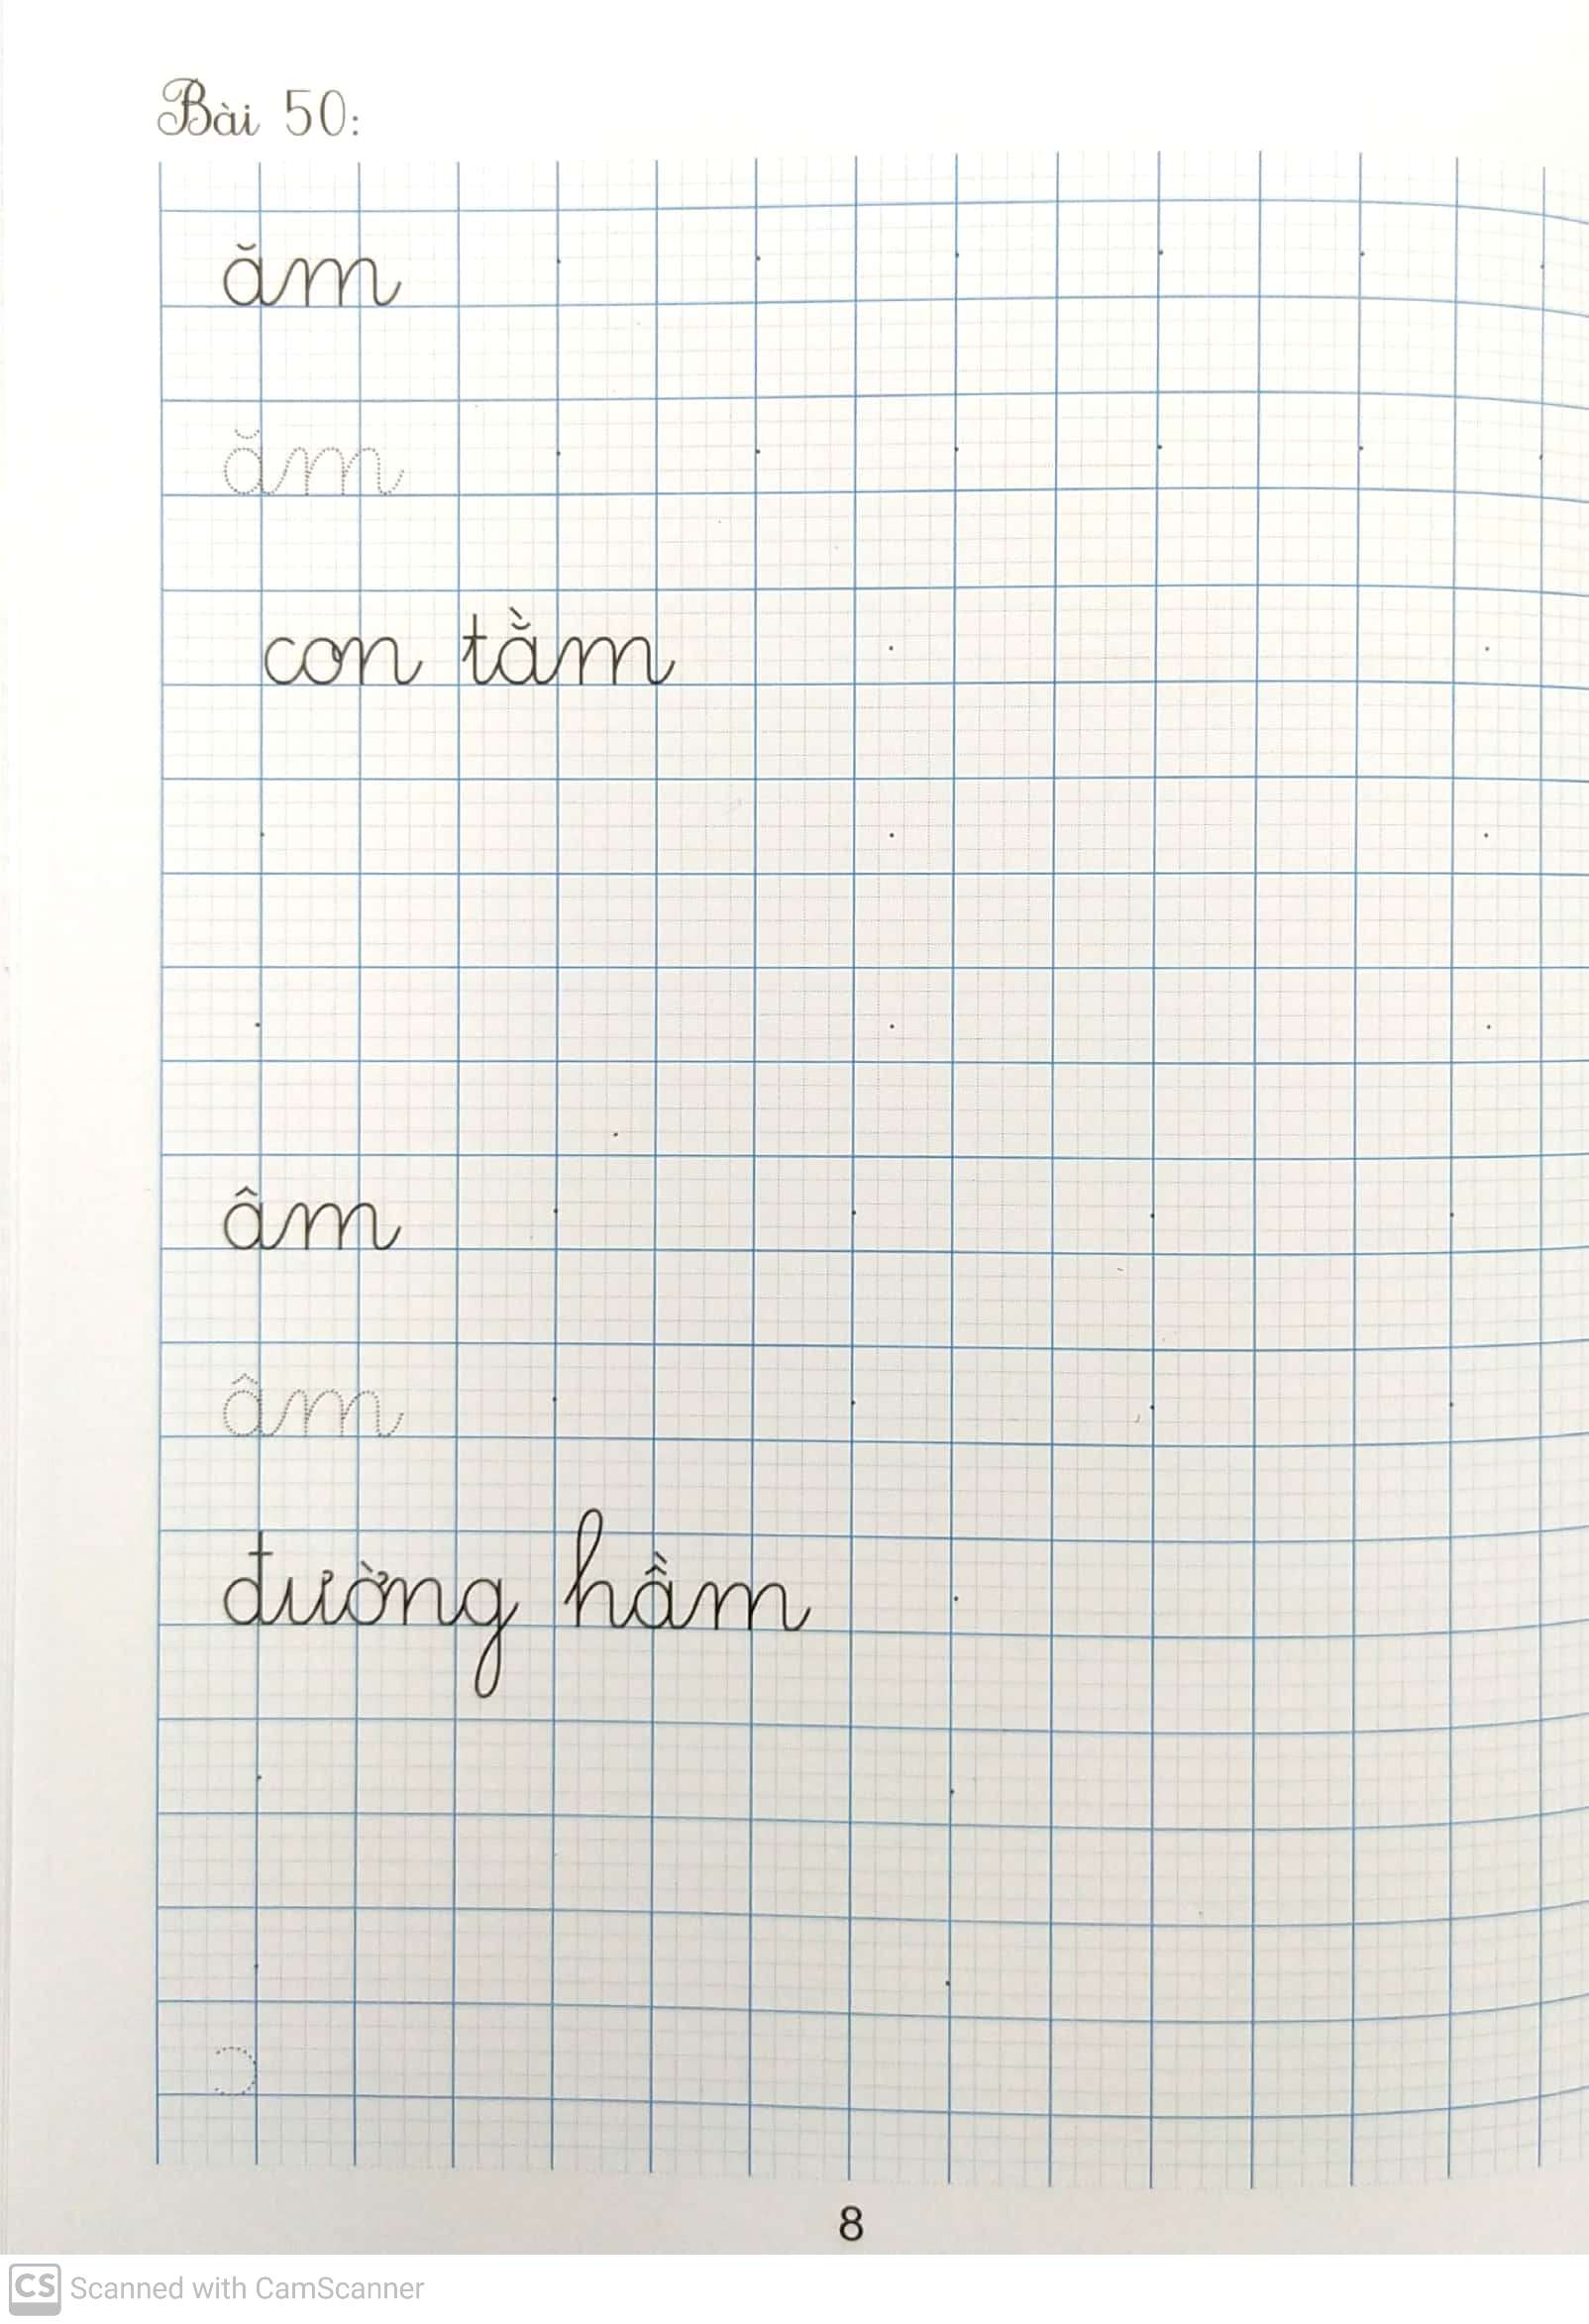 Bài 50:
ăm
ăm
con tằm
âm
âm
đường hầm
8
CS Scanned with CamScanner